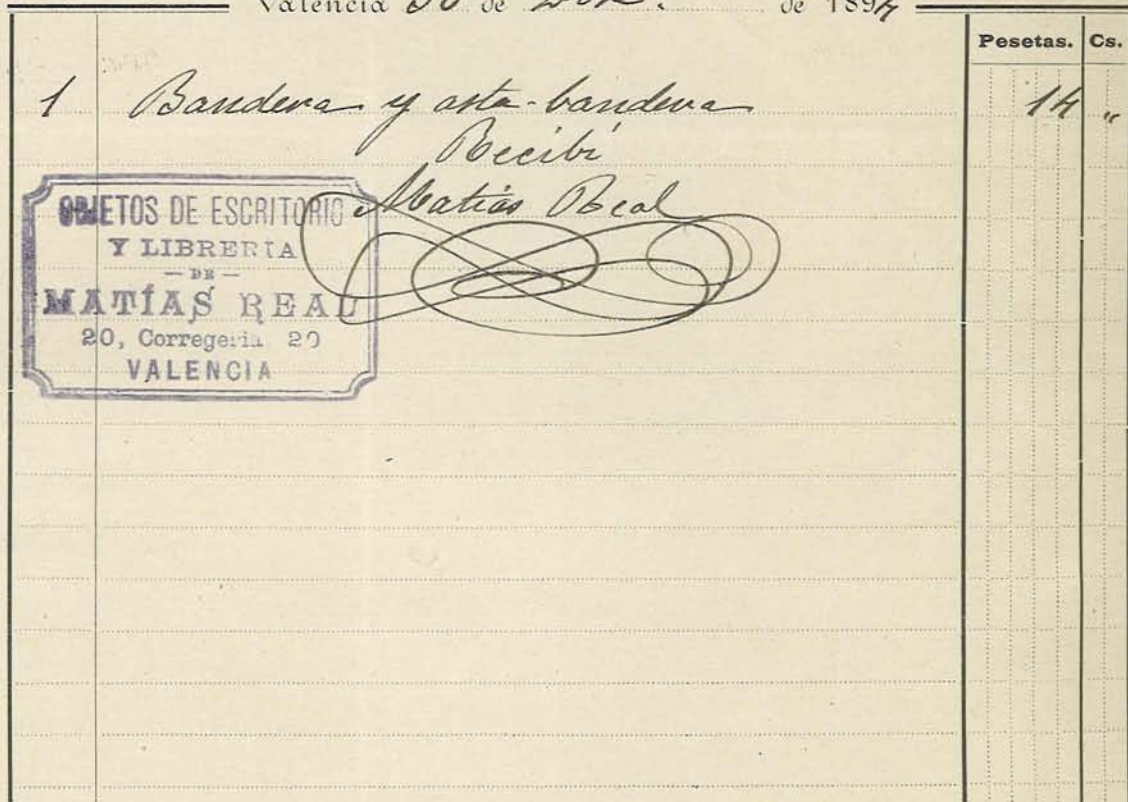 Valencia 30 de Dbre. de 1894
Pesetas. Cs.
1 Bandera y asta-bandera 14 "
Recibí
Matías Real
OBJETOS DE ESCRITORIO
Y LIBRERÍA
— DE —
MATÍAS REAL
20, Corregeria 20
VALENCIA